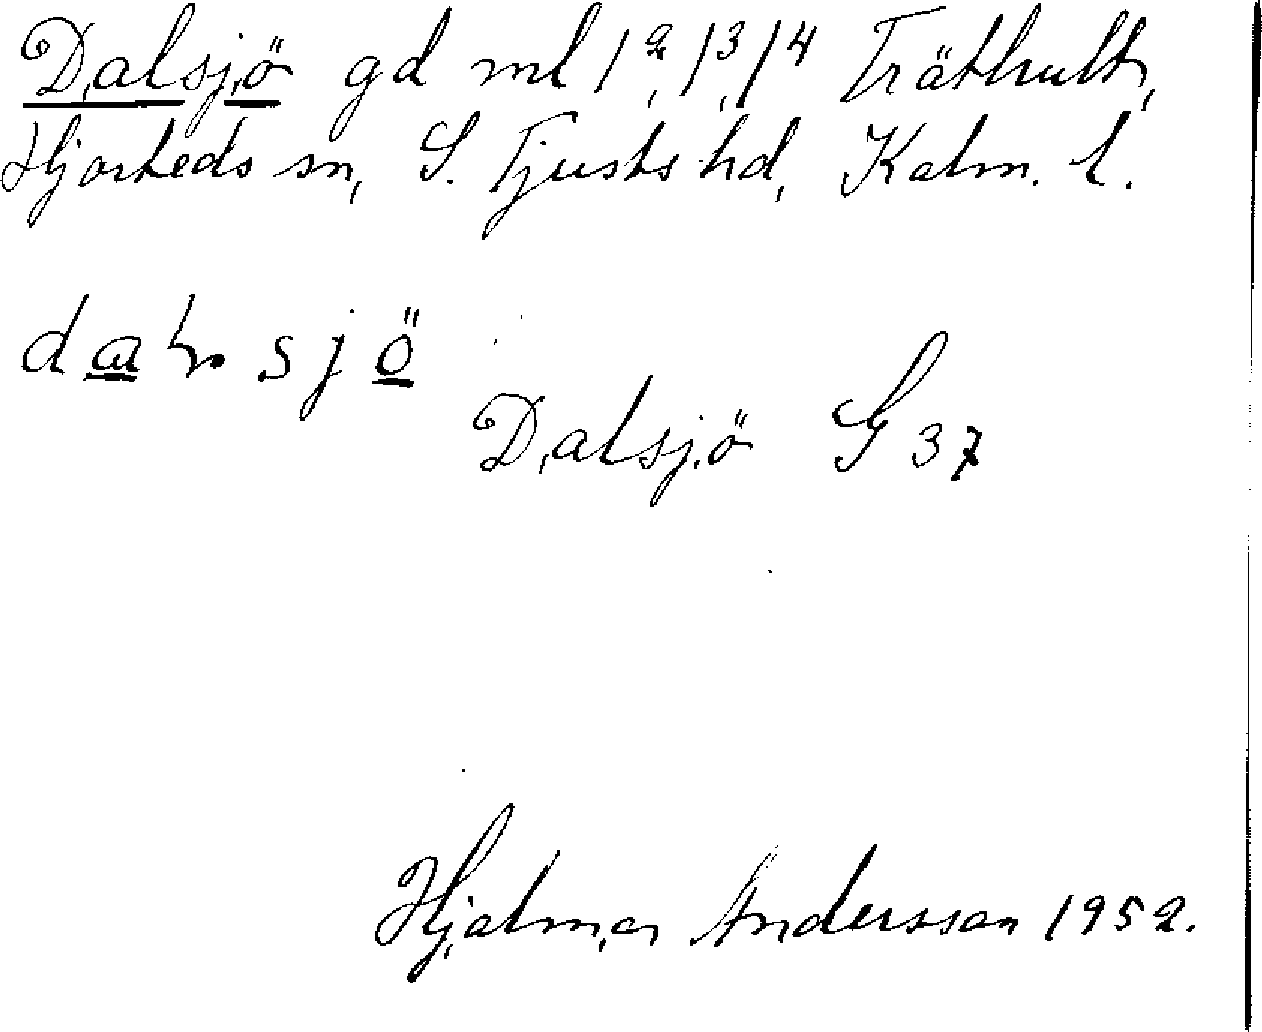 Dalsjö gd ml 1², 1³, 1⁴ Träthult,
Hjorteds sn, S. Tjusts hd, Kalm. l.
dalsjö
Dalsjö G 37
Hjalmar Andersson 1952.